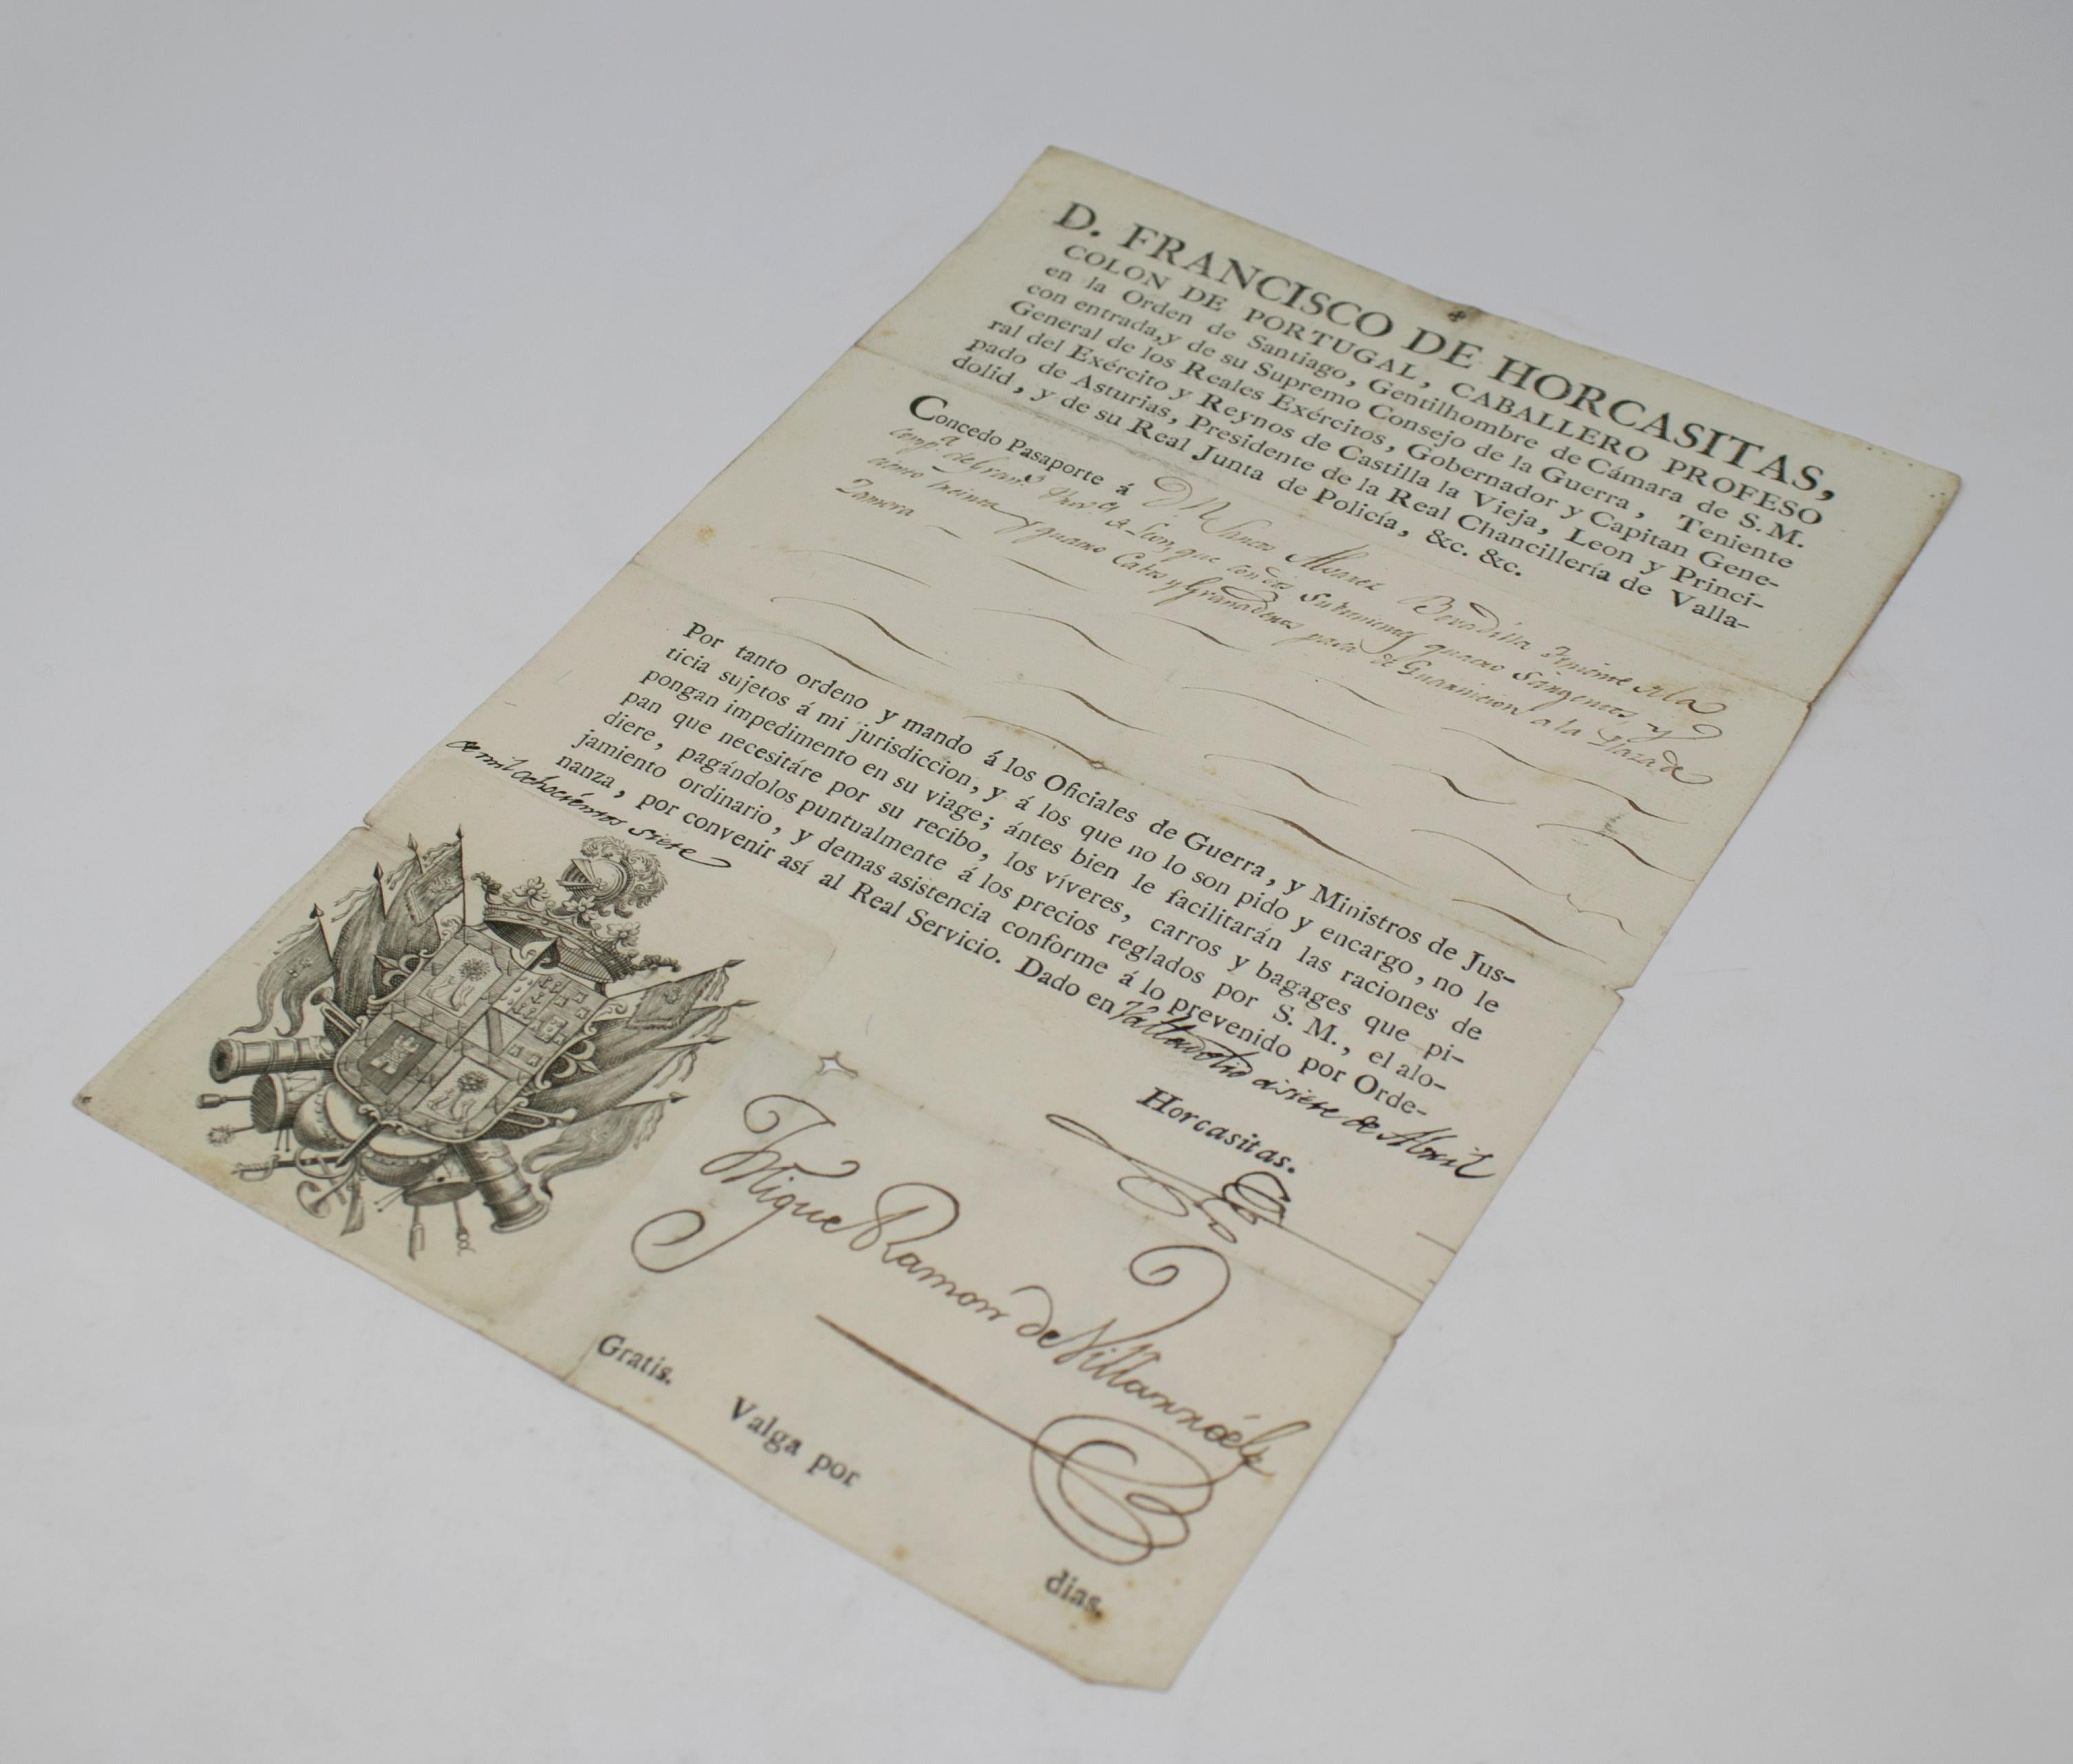 D. FRANCISCO DE HORCASITAS,
COLON DE PORTUGAL, CABALLERO PROFESO
en la Orden de Santiago, Gentilhombre de Cámara de S. M.
con entrada, y de su Supremo Consejo de la Guerra, Teniente
General de los Reales Exércitos, Gobernador y Capitan Gene-
ral del Exército y Reynos de Castilla la Vieja, Leon y Princi-
pado de Asturias, Presidente de la Real Chancillería de Valla-
dolid, y de su Real Junta de Policía, &c. &c.
Concedo Pasaporte á Dn Santos Alvarez Bovadilla Teniente
comp.a de Gran.s Prov.s de Leon, que con dos Subtenientes quatro Sargentos, y
treinta y quatro Cabos y Granaderos pasa de Guarnicion a la Plaza de
Zamora
Por tanto ordeno y mando á los Oficiales de Guerra, y Ministros de Jus-
ticia sujetos á mi jurisdiccion, y á los que no lo son pido y encargo, no le
pongan impedimento en su viage; ántes bien le facilitarán las raciones de
pan que necesitáre por su recibo, los víveres, carros y bagages que pi-
diere, pagándolos puntualmente á los precios reglados por S. M., el alo-
jamiento ordinario, y demas asistencia conforme á lo prevenido por Orde-
nanza, por convenir así al Real Servicio. Dado en Valladolid a siete de Abril
de mil ochocientos siete
Horcasitas.
Miguel Ramon de
Gratis.
Valga por dias.